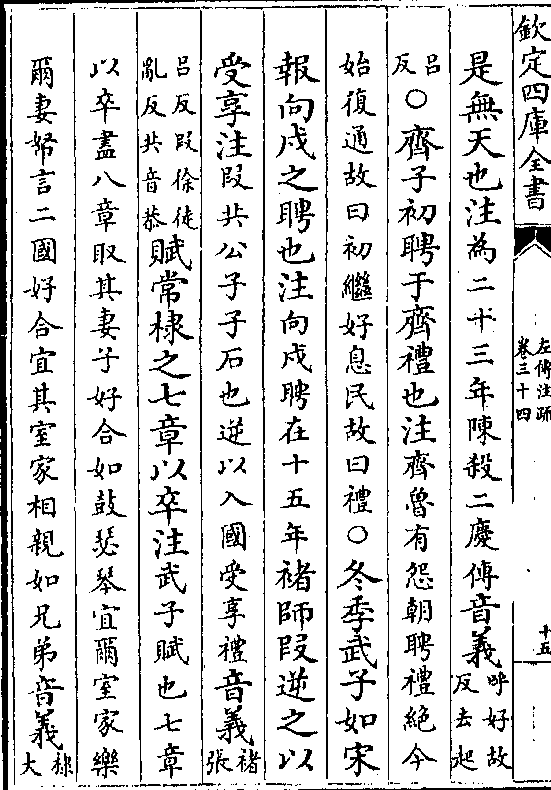 欽定四庫全書
左傳注疏
卷三十四
十五
是無天也注為二十三年陳殺二慶傳音義呼好故反去起
呂反○齊子初聘于齊禮也注齊魯有怨朝聘禮絕今
始復通故曰初繼好息民故曰禮○冬季武子如宋
報向戌之聘也注向戌聘在十五年褚師段逆之以
受享注段共公子子石也逆以入國受享禮音義褚張
呂反段徐徒亂反共音恭賦常棣之七章以卒注武子賦也七章
以卒盡八章取其妻子好合如鼓瑟琴宜爾室家樂
爾妻帑言二國好合宜其室家相親如兄弟音義棣大